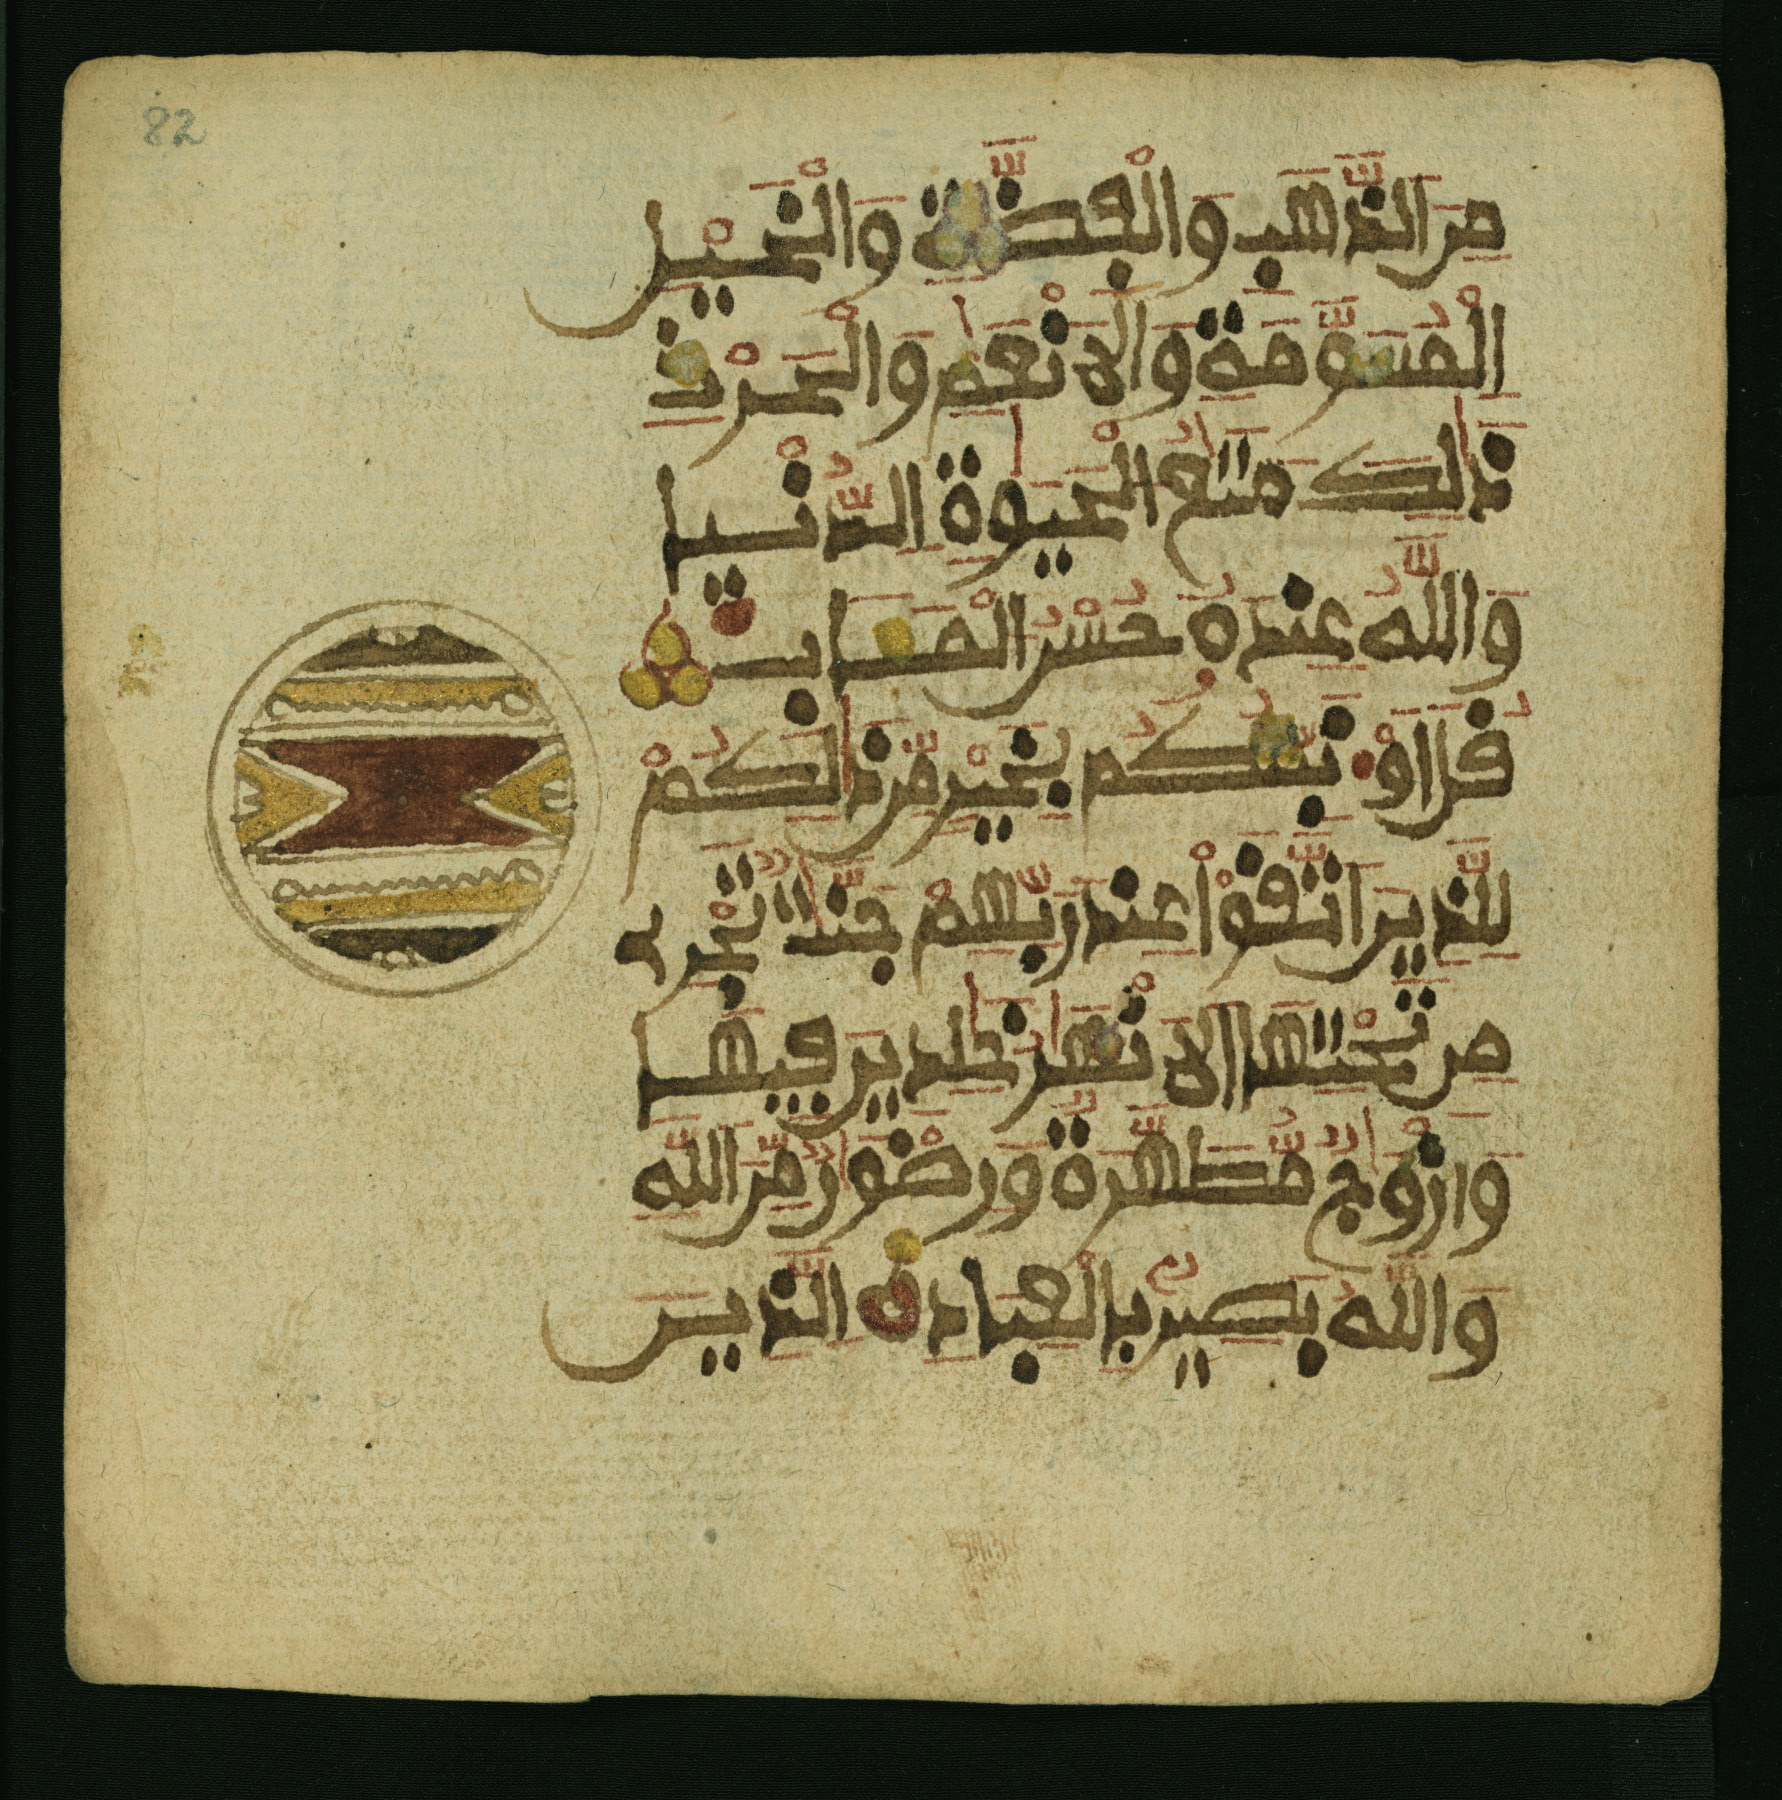 82
مِنَ الذَّهَبِ وَالْفِضَّةِ وَالْخَيْلِ
الْمُسَوَّمَةِ وَالَانْعَٰمِ وَالْحَرْثِ
ذَٰلِكَ مَتَٰعُ الْحَيَوٰةِ الدُّنْيَا
وَاللَّهُ عِندَهُ حُسْنُ الْمَـَٔابِ
قُلَ اَوْ۬نَبِّئُكُم بِخَيْرٍ مِّن ذَٰلِكُمْ
لِلَّذِينَ اَتَّقَوْا عِندَ رَبِّهِمْ جَنَّٰتٌ تَجْرِے
مِن تَحْتِهَا اَلَانْهَٰرُ خَٰلِدِينَ فِيهَا
وَأَزْوَٰجٌ مُّطَهَّرَةٌ وَرِضْوَٰنٌ مِّنَ اللَّهِ
وَاللَّهُ بَصِيرٌ بِالْعِبَادِ الَّذِينَ